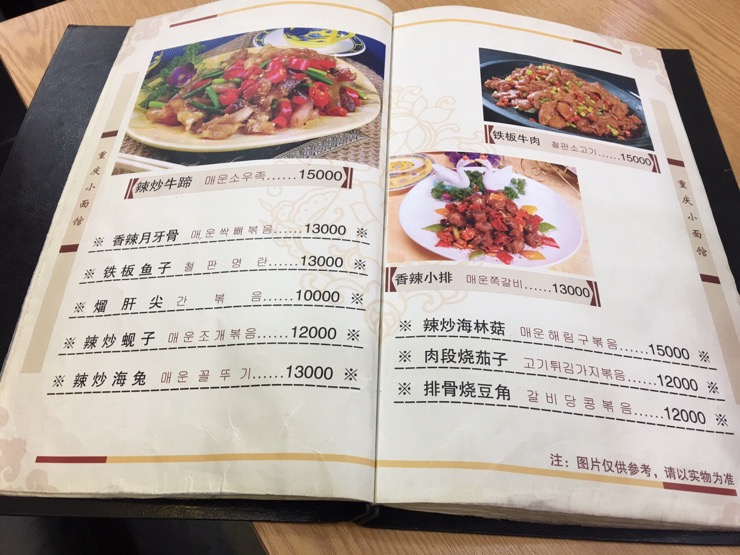 重庆小面馆
辣炒牛蹄 매운소우족......15000
※ 香辣月牙骨 매운싹뼈볶음......13000 ※
※ 铁板鱼子 철판명란......13000 ※
※ 熘肝尖 간볶음......10000 ※
※ 辣炒蚬子 매운조개볶음......12000 ※
※ 辣炒海兔 매운꼴뚜기......13000 ※
铁板牛肉 철판소고기......15000
香辣小排 매운쪽갈비......13000
※ 辣炒海林菇 매운해림구볶음......15000 ※
※ 肉段烧茄子 고기튀김가지볶음......12000 ※
※ 排骨烧豆角 갈비당콩볶음......12000 ※
注：图片仅供参考，请以实物为准
重庆小面馆